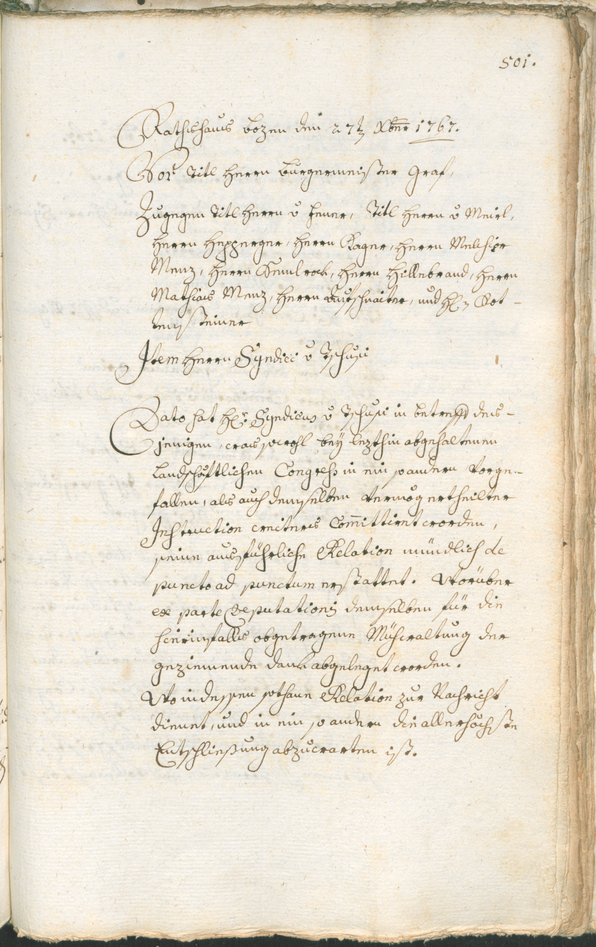 501.
Rathshaus Bozen den 27t Xber 1767.
Vor Titl Herrn Burgermeister Graf,
Zugegen Titl Herrn v Feuer, Titl Herrn v Meirl,
Herrn Hepperger, Herrn Kager, Herrn Melchior
Menz, Herrn Gumbrock, Herrn Hillebrand, Herrn
Mathias Menz, Herrn Gutschneiter, und H. Rot-
tensteiner
Item Herrn Syndici v Tschusi
Dato hat Hr Syndicus v Tschusi in betreff des-
jenigen, was sowohl bey lezthin abgehaltenen
Landschäftlichen Congreß in ein so andern vorge-
fallen, als auch demselben vermög ertheilter
Instruction weiters Committirt worden,
seine ausführliche Relation mündlich de
puncto ad punctum erstattet. Worüber
ex parte Deputationis demselben für die
hierinfalls obgetragene Mühewaltung der
geziemende dank abgeleget worden.
Wo indessen sothane Relation zur Nachricht
dienet, und in ein so andern die allerhöchste
Entschließung abzuwarten ist.